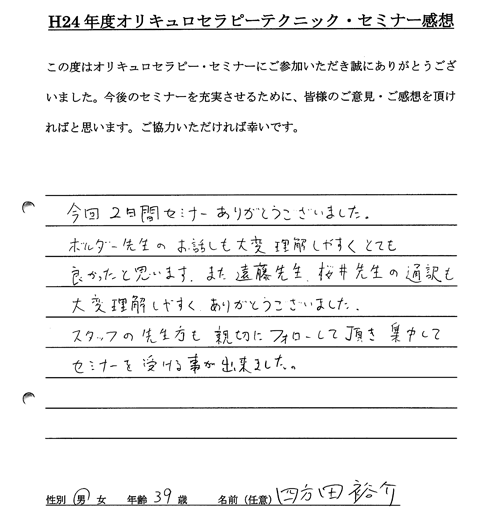 H24年度オリキュロセラピーテクニック・セミナー感想
この度はオリキュロセラピー・セミナーにご参加いただき誠にありがとうござ
いました。今後のセミナーを充実させるために、皆様のご意見・ご感想を頂け
ればと思います。ご協力いただければ幸いです。
今回 2日間セミナーありがとうございました。
ボルダー先生のお話しも大変理解しやすくとても
良かったと思います。また遠藤先生、桜井先生の通訳も
大変理解しやすく、ありがとうございました。
スタッフの先生方も親切にフォローして頂き集中して
セミナーを受ける事が出来ました。
性別 男 女 年齢 39 歳 名前（任意） 四方田裕介